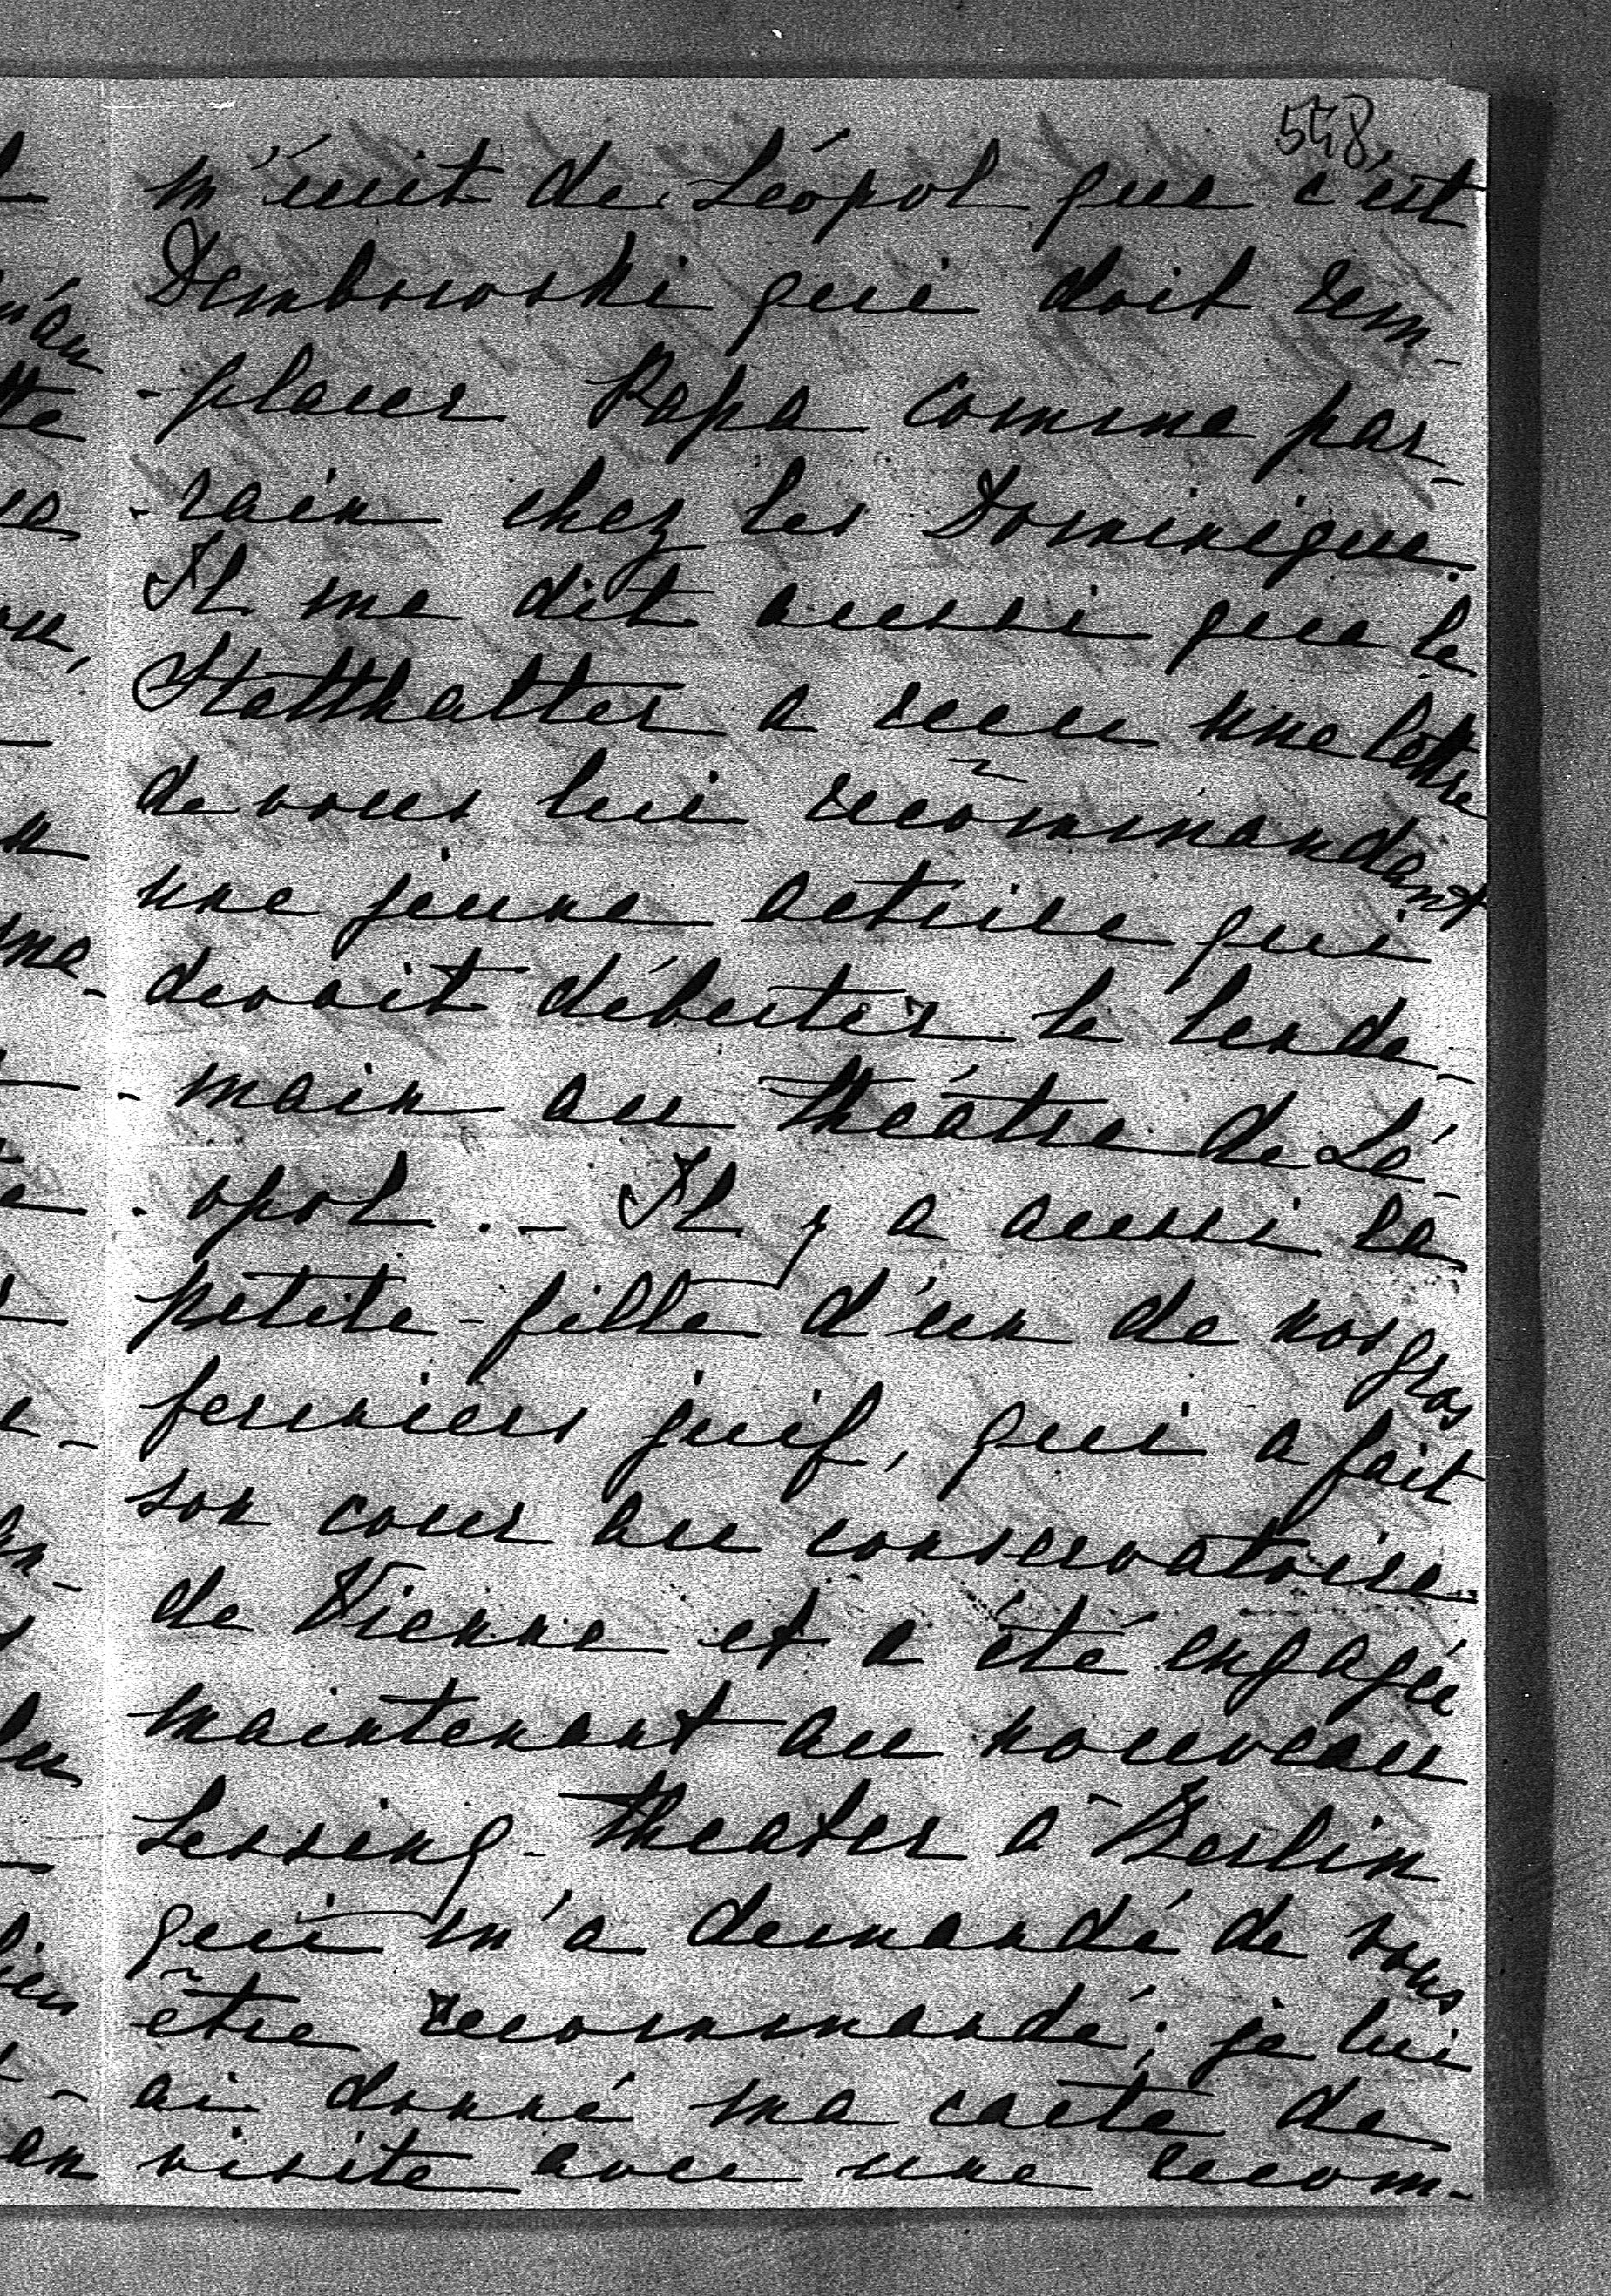 548,
m'écrit de Léopol que c'est
Dembowski qui doit rem-
-placer Papa comme par-
-rain chez les Dominique.
Il me dit aussi que le
Statthalter a reçu une lettre
de vous lui recommandant
une jeune actrice qui
devait débuter le lende-
-main au théâtre de Lé-
-opol. - Il y a aussi la
petite-fille d'un de nos gros
fermiers juif, qui a fait
son cour au conservatoire
de Vienne et a été engagée
maintenant au nouveau
Lessing-theater à Berlin
qui m'a demandé de vous
être recommandé; je lui
ai donné ma carte de
visite avec une recom-